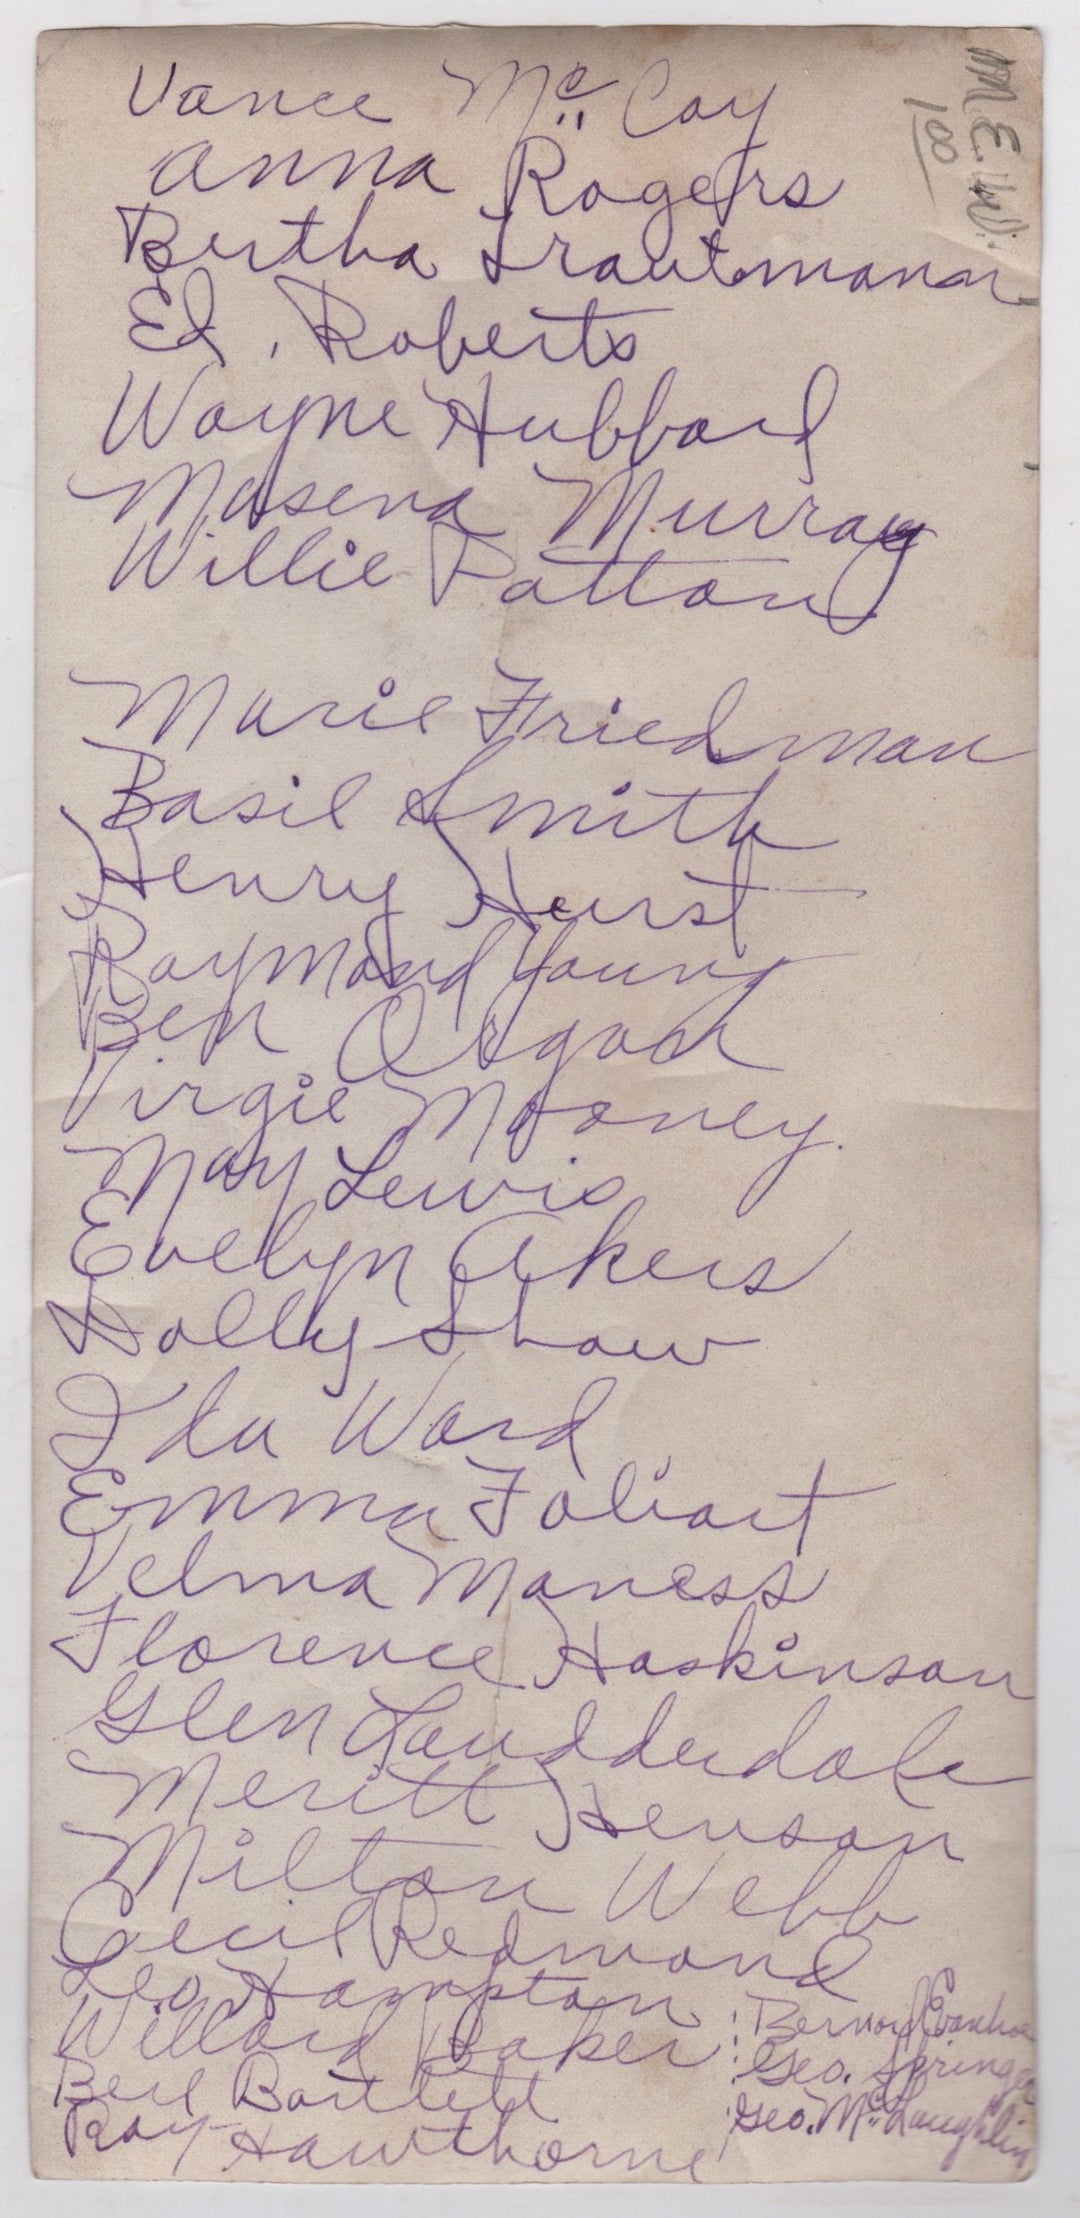 Vance Mc Coy
Anna Rogers
Bertha Trautmann
Ed. Roberts
Wayne Hubbard
Masena Murray
Willie Patton
Marie Friedman
Basil Smith
Henry Hurst
Raymond Young
Ben Organ
Virgie Mooney.
May Lewis
Evelyn Akers
Dolly Shaw
Ida Ward
Emma Foliart
Velma Maness
Florence Haskinson
Glen Laudderdale
Meritt Henson
Milton Webb
Cecil Redmond
Leo Hampton
Willard Baker
Berl Bartlett
Ray Hawthorne
Bernard Evanhoe
Geo. Springer
Geo. Mc Laughlin
M.E.
100